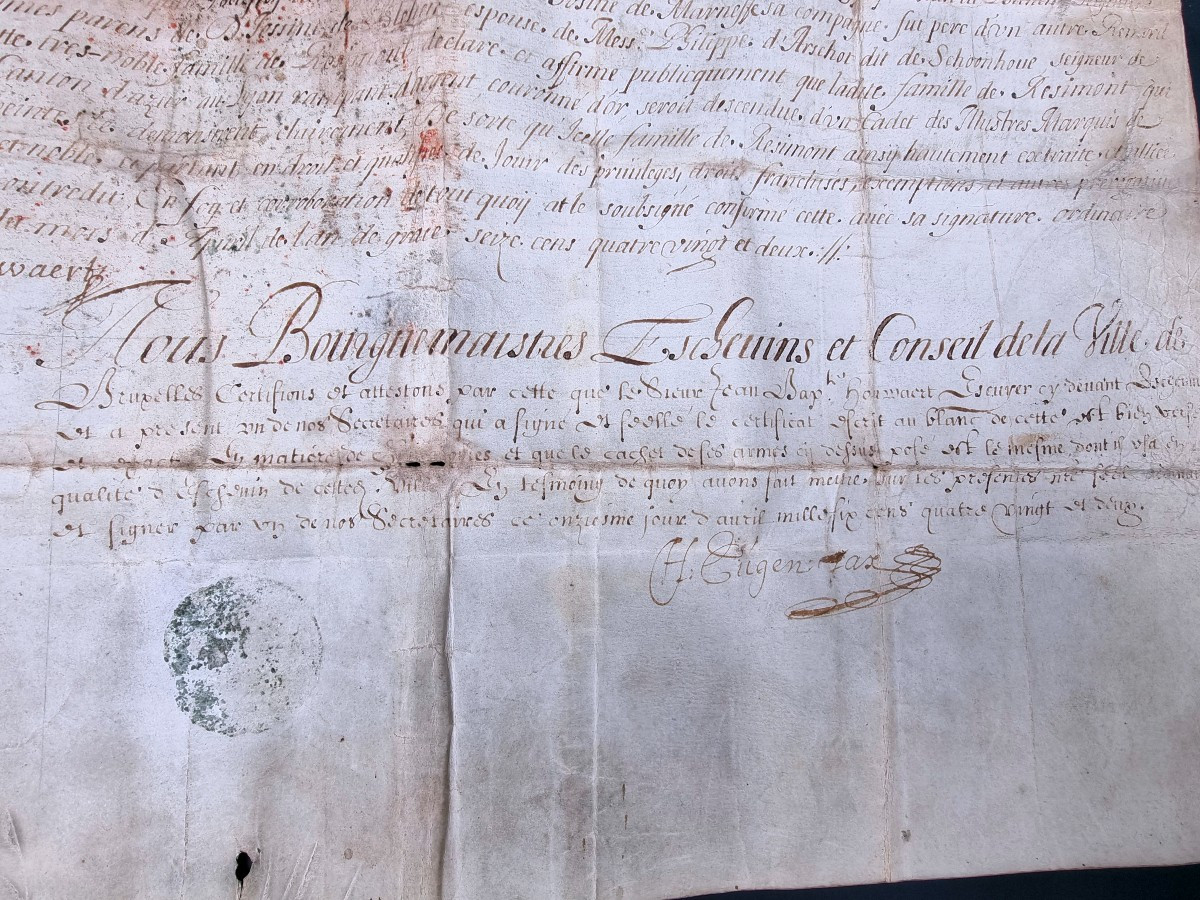 mes parens de Josine de Marneffe sa compagne fut pere d'vn autre Remord
espouse de Mess. Philippe d'Arschot dit de Schoonhoue seigneur de
tte tres-noble famille de declare et affirme publicquement que ladite famille de Resimont qui
Canton d'azur au lyon rampart d'argent couronne d'or, seroit descendue d'vn Cadet des Illustres Marquis de
clairement, de sorte qu'Icelle famille de Resimont ainsy hautement extraite et alliée
et noble en droit et de Jouir des privileges, droits, franchises, exemptions, et autres prerogatives
contredit En foy et corroboration de tout quoy at le soubsigné confirmé cette avec sa signature ordinaire
du mois d'Apvril de l'an de grace seize cens quatre vingt et deux://:
waertz
Nous Bourguemaistres Escheuins et Conseil de la Ville de
Bruxelles Certifions et attestons par cette que le Sieur Jean Bap.tte Houwaert Escuyer cy deuant Escheuin
et a present vn de nos Secretaires qui a signé et seellé le certificat escrit au blanc de cette est bien versé
et exact En matiere de et que le cachet de ses armes cy dessus posé est le mesme dont il vsa en
qualité d'Escheuin de cette Ville En tesmoing de quoy auons fait mettre sur les presentes nre seel
et signer par vn de nos Secretaires ce onziesme jour d'auril mille six cens quatre vingt et deux.
H. Eugen